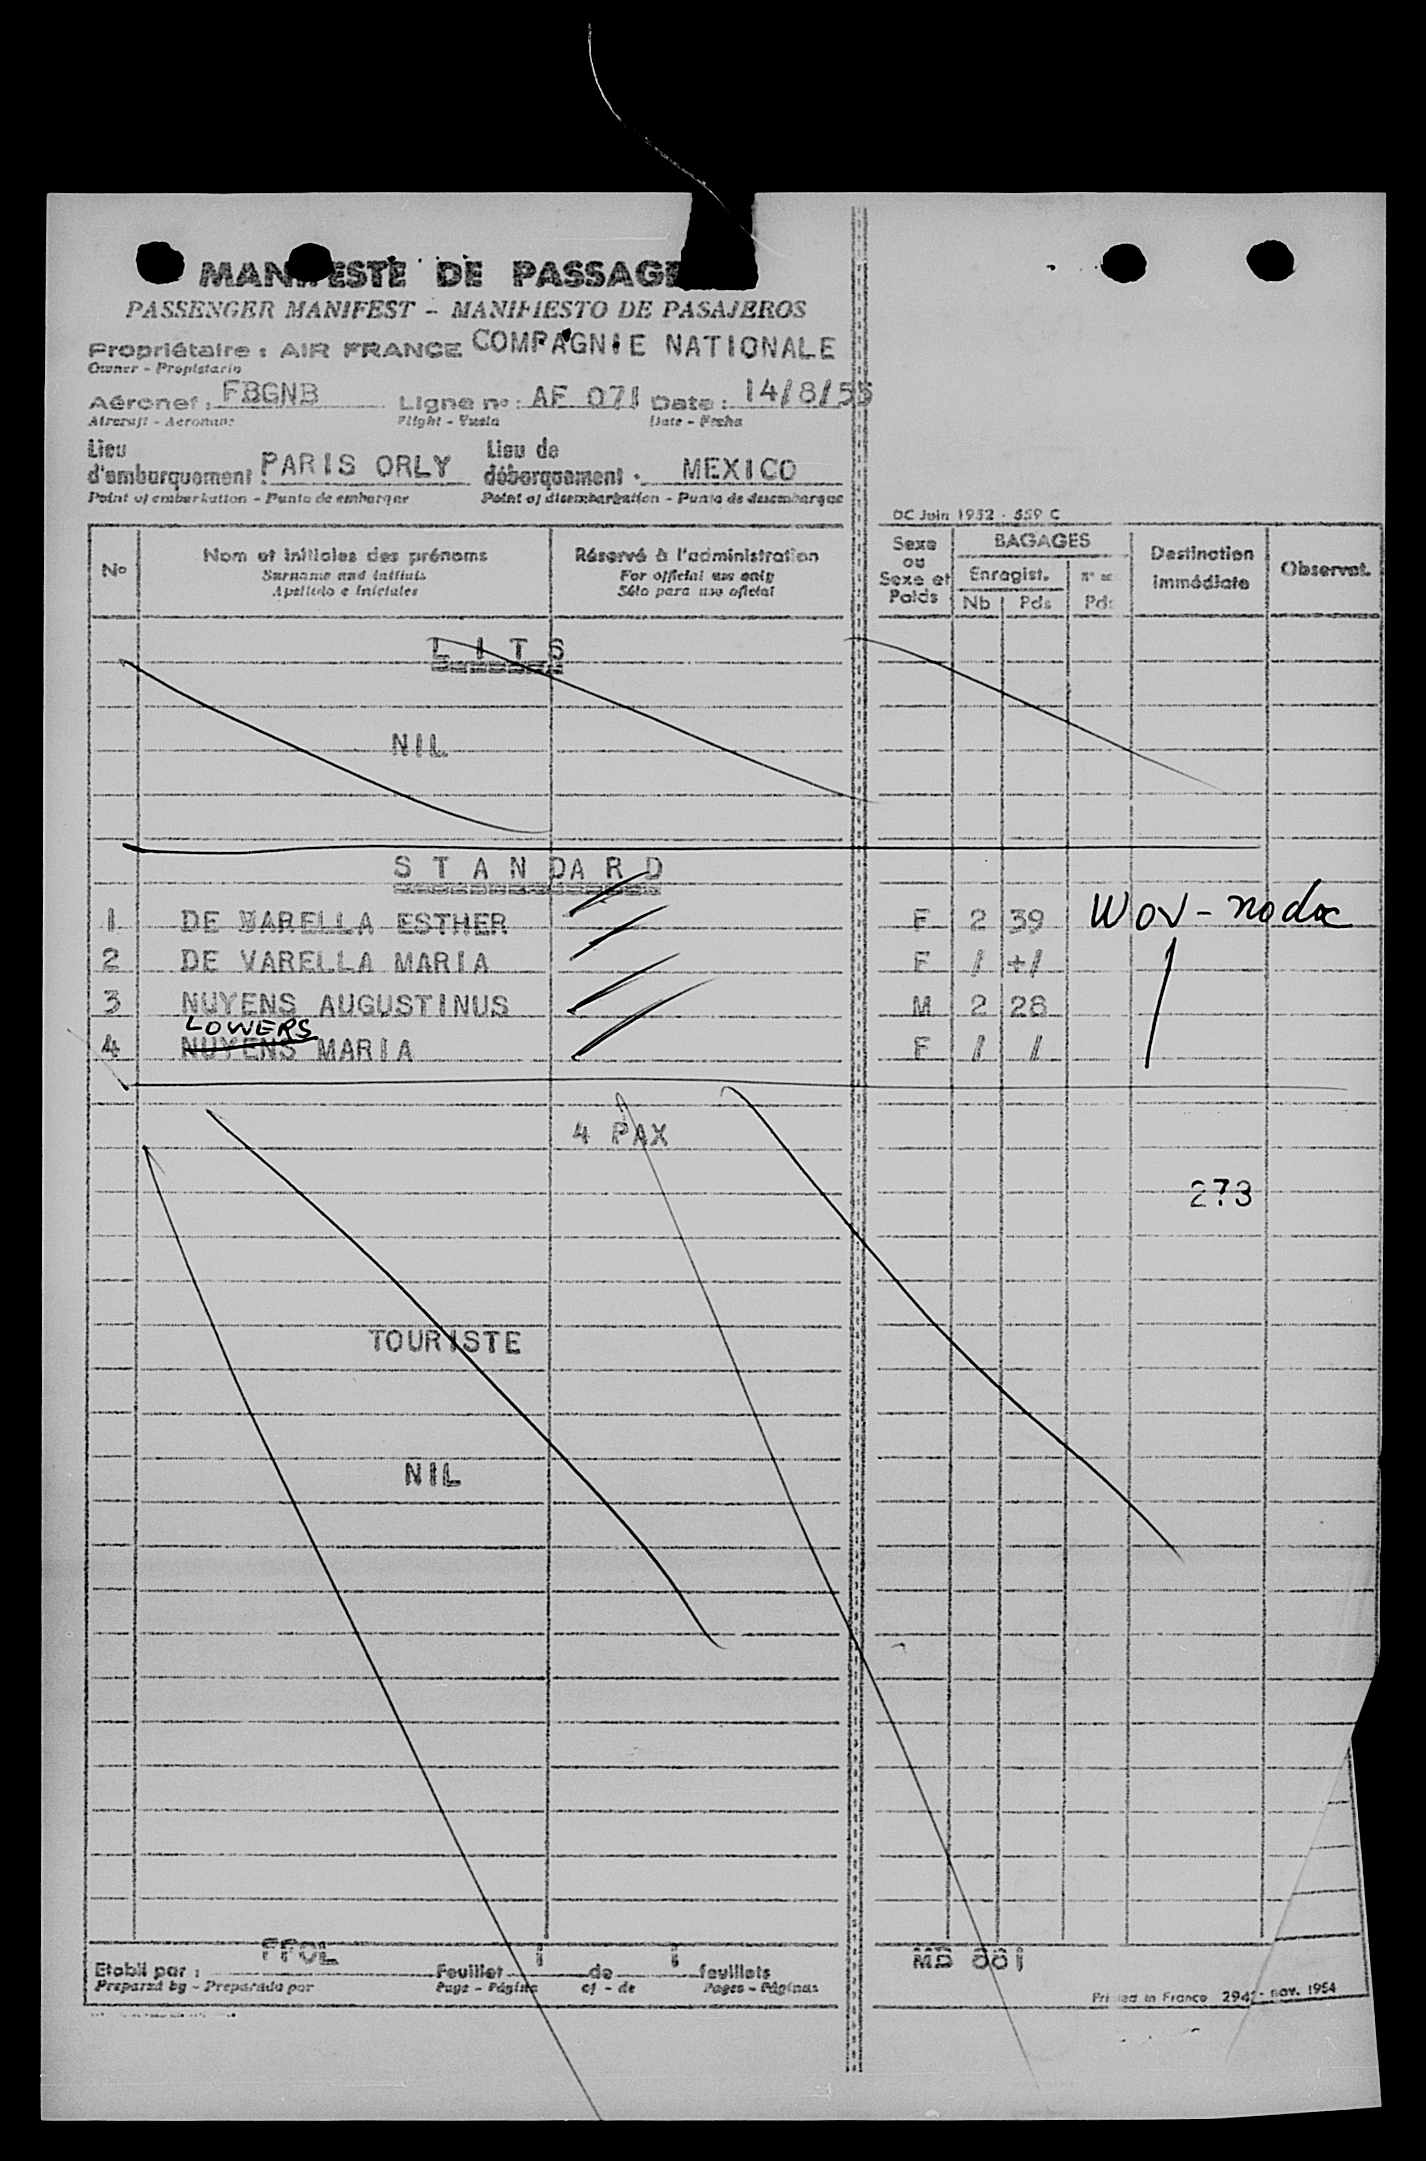 MANIFESTE DE PASSAGE
PASSENGER MANIFEST - MANIFIESTO DE PASAJEROS
Propriétaire : AIR FRANCE COMPAGNIE NATIONALE
Owner - Propietario
Aéronef : FBGNB Ligne nº : AF 071 Date : 14/8/55
Aircraft - Aeronave Flight - Vuelo Date - Fecha
Lieu d'embarquement : PARIS ORLY Lieu de débarquement : MEXICO
Point of embarkation - Punto de embarque Point of disembarkation - Punto de desembarque
DC Juin 1952 - 559 C
Nº Nom et initiales des prénoms Réservé à l'administration Sexe ou Sexe et Poids BAGAGES Destination immédiate Observat.
Surname and initials For official use only Enregist.
Apellido e iniciales Sólo para uso oficial Nb Pds Pds
L I T S
NIL
S T A N D A R D
1 DE VARELLA ESTHER F 2 39 WOV - no doc
2 DE VARELLA MARIA F / +/
3 NUYENS AUGUSTINUS M 2 28
LOWERS
4 NUYENS MARIA F / /
4 PAX
273
TOURISTE
NIL
Etabli par : FPOL Feuillet 1 de 1 feuillets MB 551
Prepared by - Preparado por Page - Página of - de Pages - Páginas
Printed in France 2942 - nov. 1954